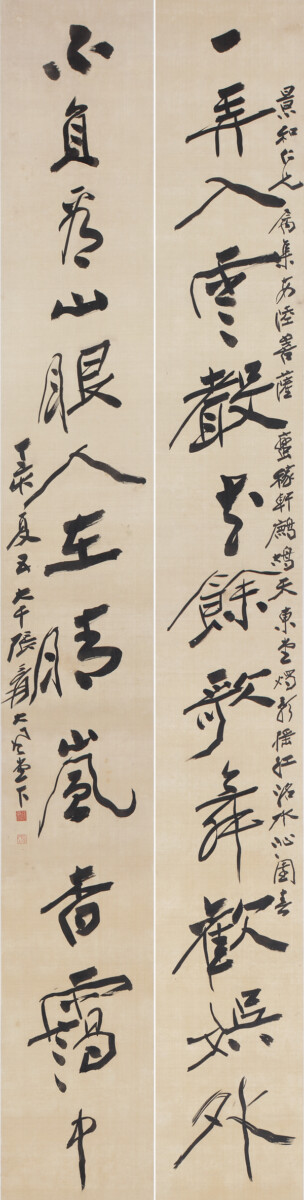 一弄入雲聲花餘歌舞歡娛外
景和仁兄屬集安陸菩薩蠻稼軒鷓鴣天東堂燭影搖紅洺水沁園春
不負看山眼人在晴嵐杳靄中
丁亥夏五大千張爰大風堂下